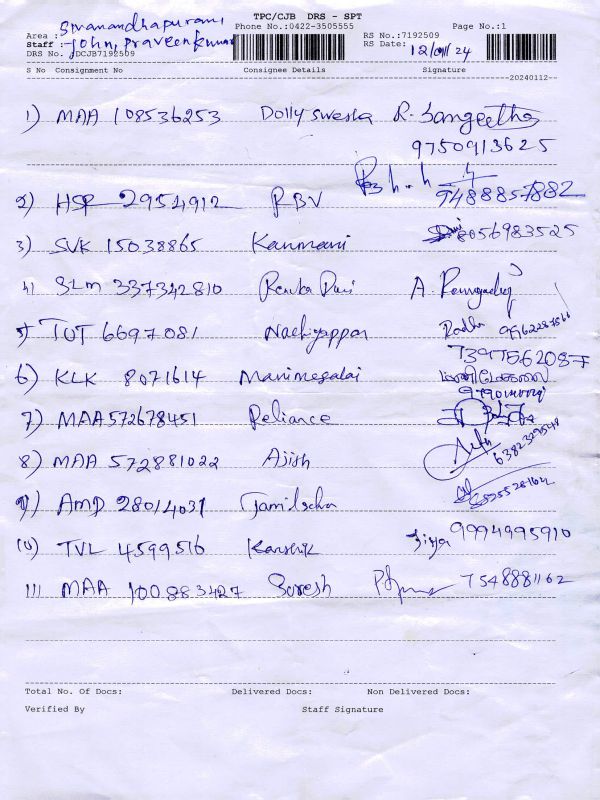 TPC/CJB DRS - SPT
Phone No.:0422-3505555 Page No.:1
Area : Sivanandhapuram
Staff : John, Praveenkumar
RS No.:7192509
RS Date: 12/01/24
DRS No. :DCJB7192509
S No Consignment No Consignee Details Signature
20240112
1) MAA 108536253 Dolly swesha R. Sangeetha
9750913625
2) HSR 2954912 RBV 9488857882
3) SVK 15038865 Kanmani 8056983525
4) SLM 337342810 Renuka Devi A.
5) TUT 6697081 Nachiyappan Radha
7397562087
6) KLK 8071614 Manimegalai மணிமேகலை
7) MAA 572678451 Reliance
8) MAA 572881022 Ajish 6382329548
9) AMD 28014031 Tamilselva
10) TVL 4599516 Karthik 9994995910
11) MAA 100883427 Suresh 7548881162
Total No. Of Docs: Delivered Docs: Non Delivered Docs:
Verified By Staff Signature